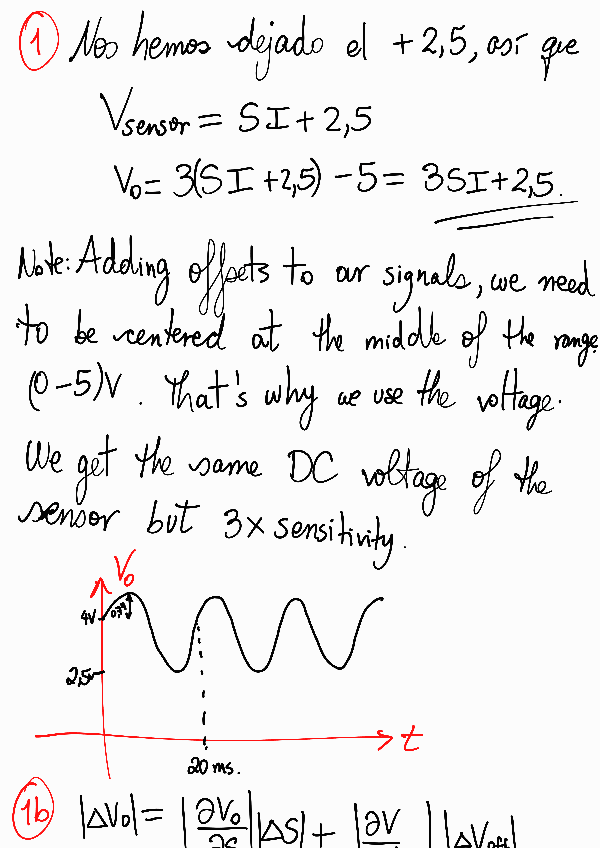 1 Nos hemos dejado el +2,5, así que
Vsensor = SI + 2,5
Vo = 3(SI + 2,5) - 5 = 3SI + 2,5.
Note: Adding offsets to our signals, we need
to be centered at the middle of the range
(0-5)V. That's why we use the voltage.
We get the same DC voltage of the
sensor but 3x sensitivity.
Vo
4V
2,5
t
20 ms.
1b |ΔVo| = |∂Vo/∂S||ΔS| + |∂V/ ||ΔVoff|